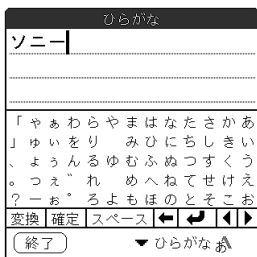 ひらがな
ソニー
「 ゃ ぁ わ ら や ま は な た さ か あ
」 ゅ ぃ を り み ひ に ち し き い
、 ょ ぅ ん る ゆ む ふ ぬ つ す く う
。 っ ぇ ゛ れ め へ ね て せ け え
？ ー ぉ ゜ ろ よ も ほ の と そ こ お
変換 確定 スペース
終了 ひらがな あA